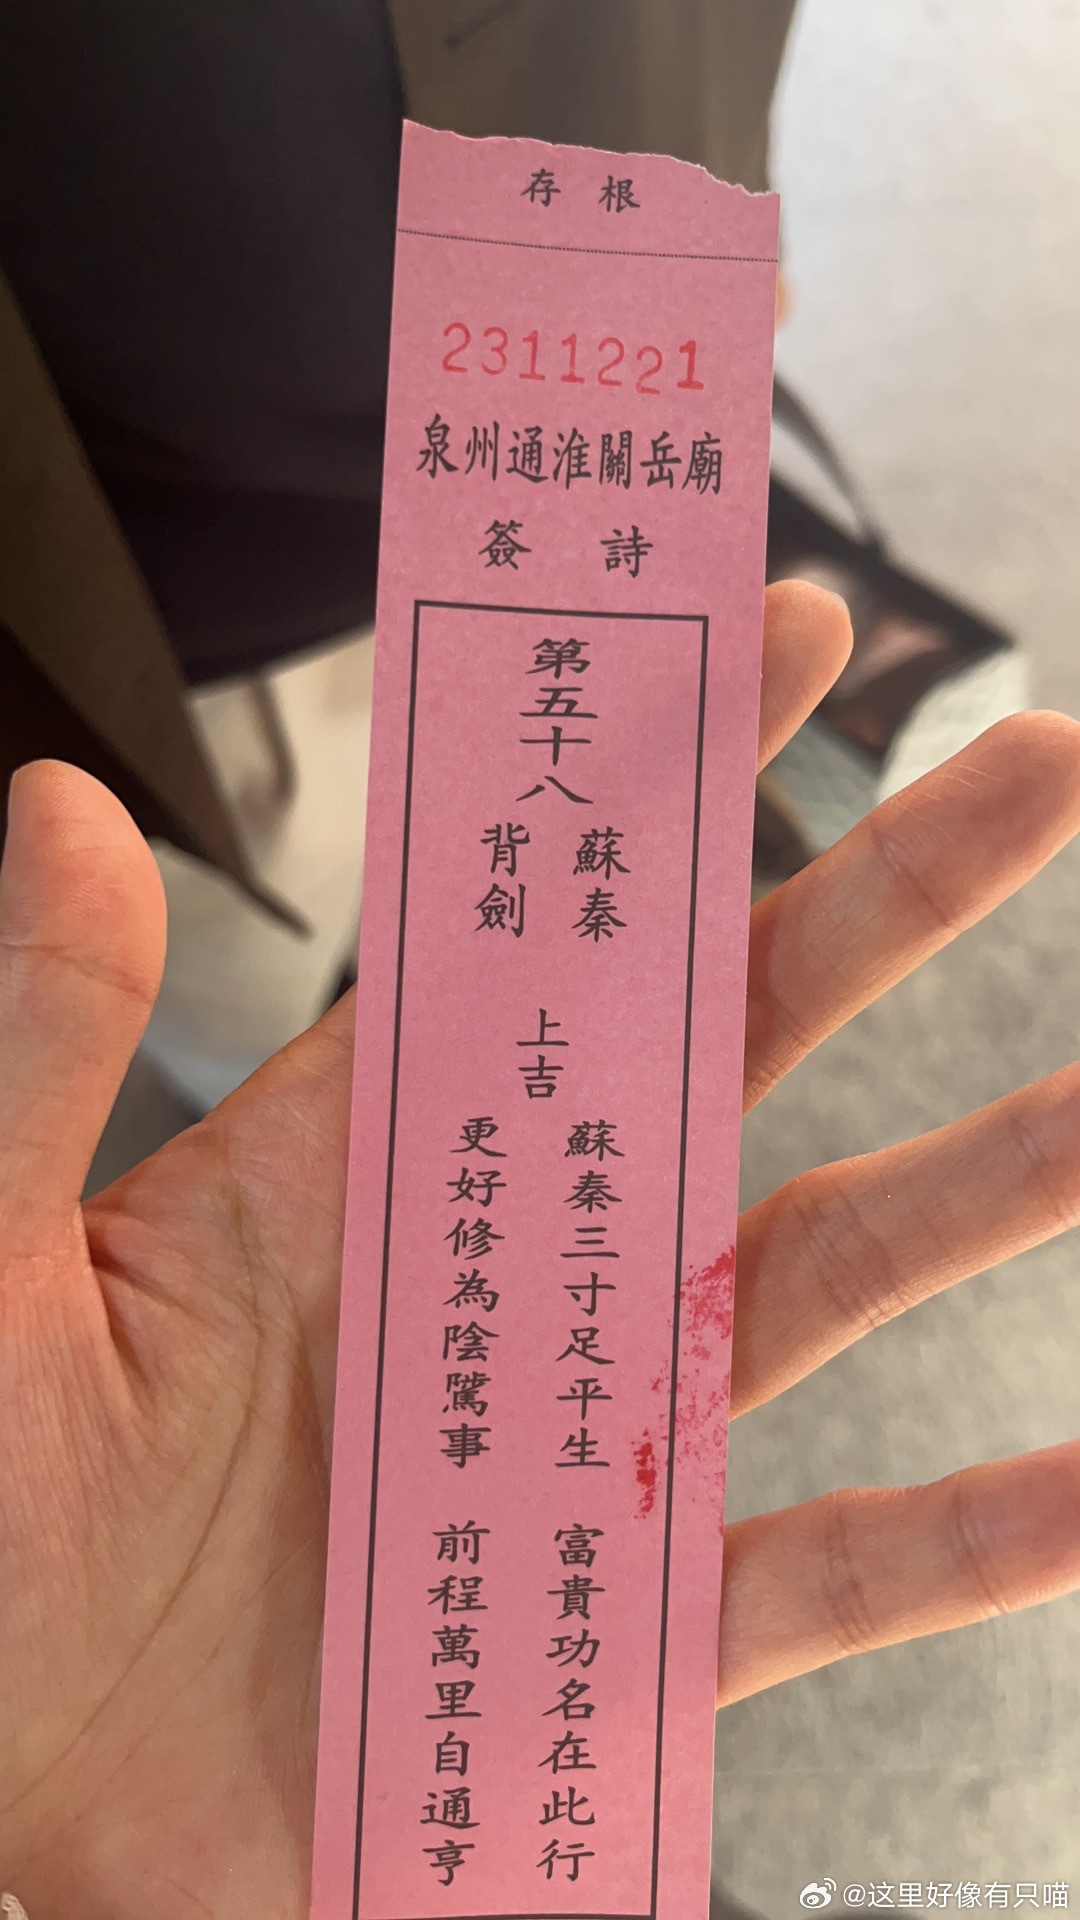 存根
2311221
泉州通淮關岳廟
簽詩
第五十八
蘇秦
背劍
上吉
蘇秦三寸足平生 富貴功名在此行
更好修為陰騭事 前程萬里自通亨
@这里好像有只喵